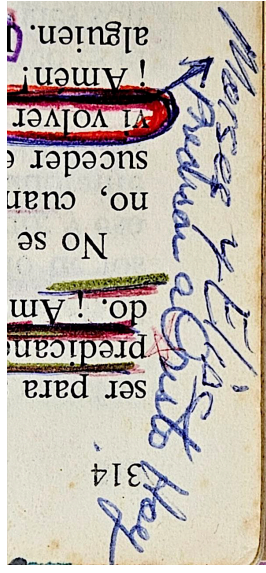 314
ser para
predican
do. ¡Am
No se
no, cuan
suceder e
vi volver
¡Amen!
alguien.
Moises y Elias
Predican a Cristo Hoy